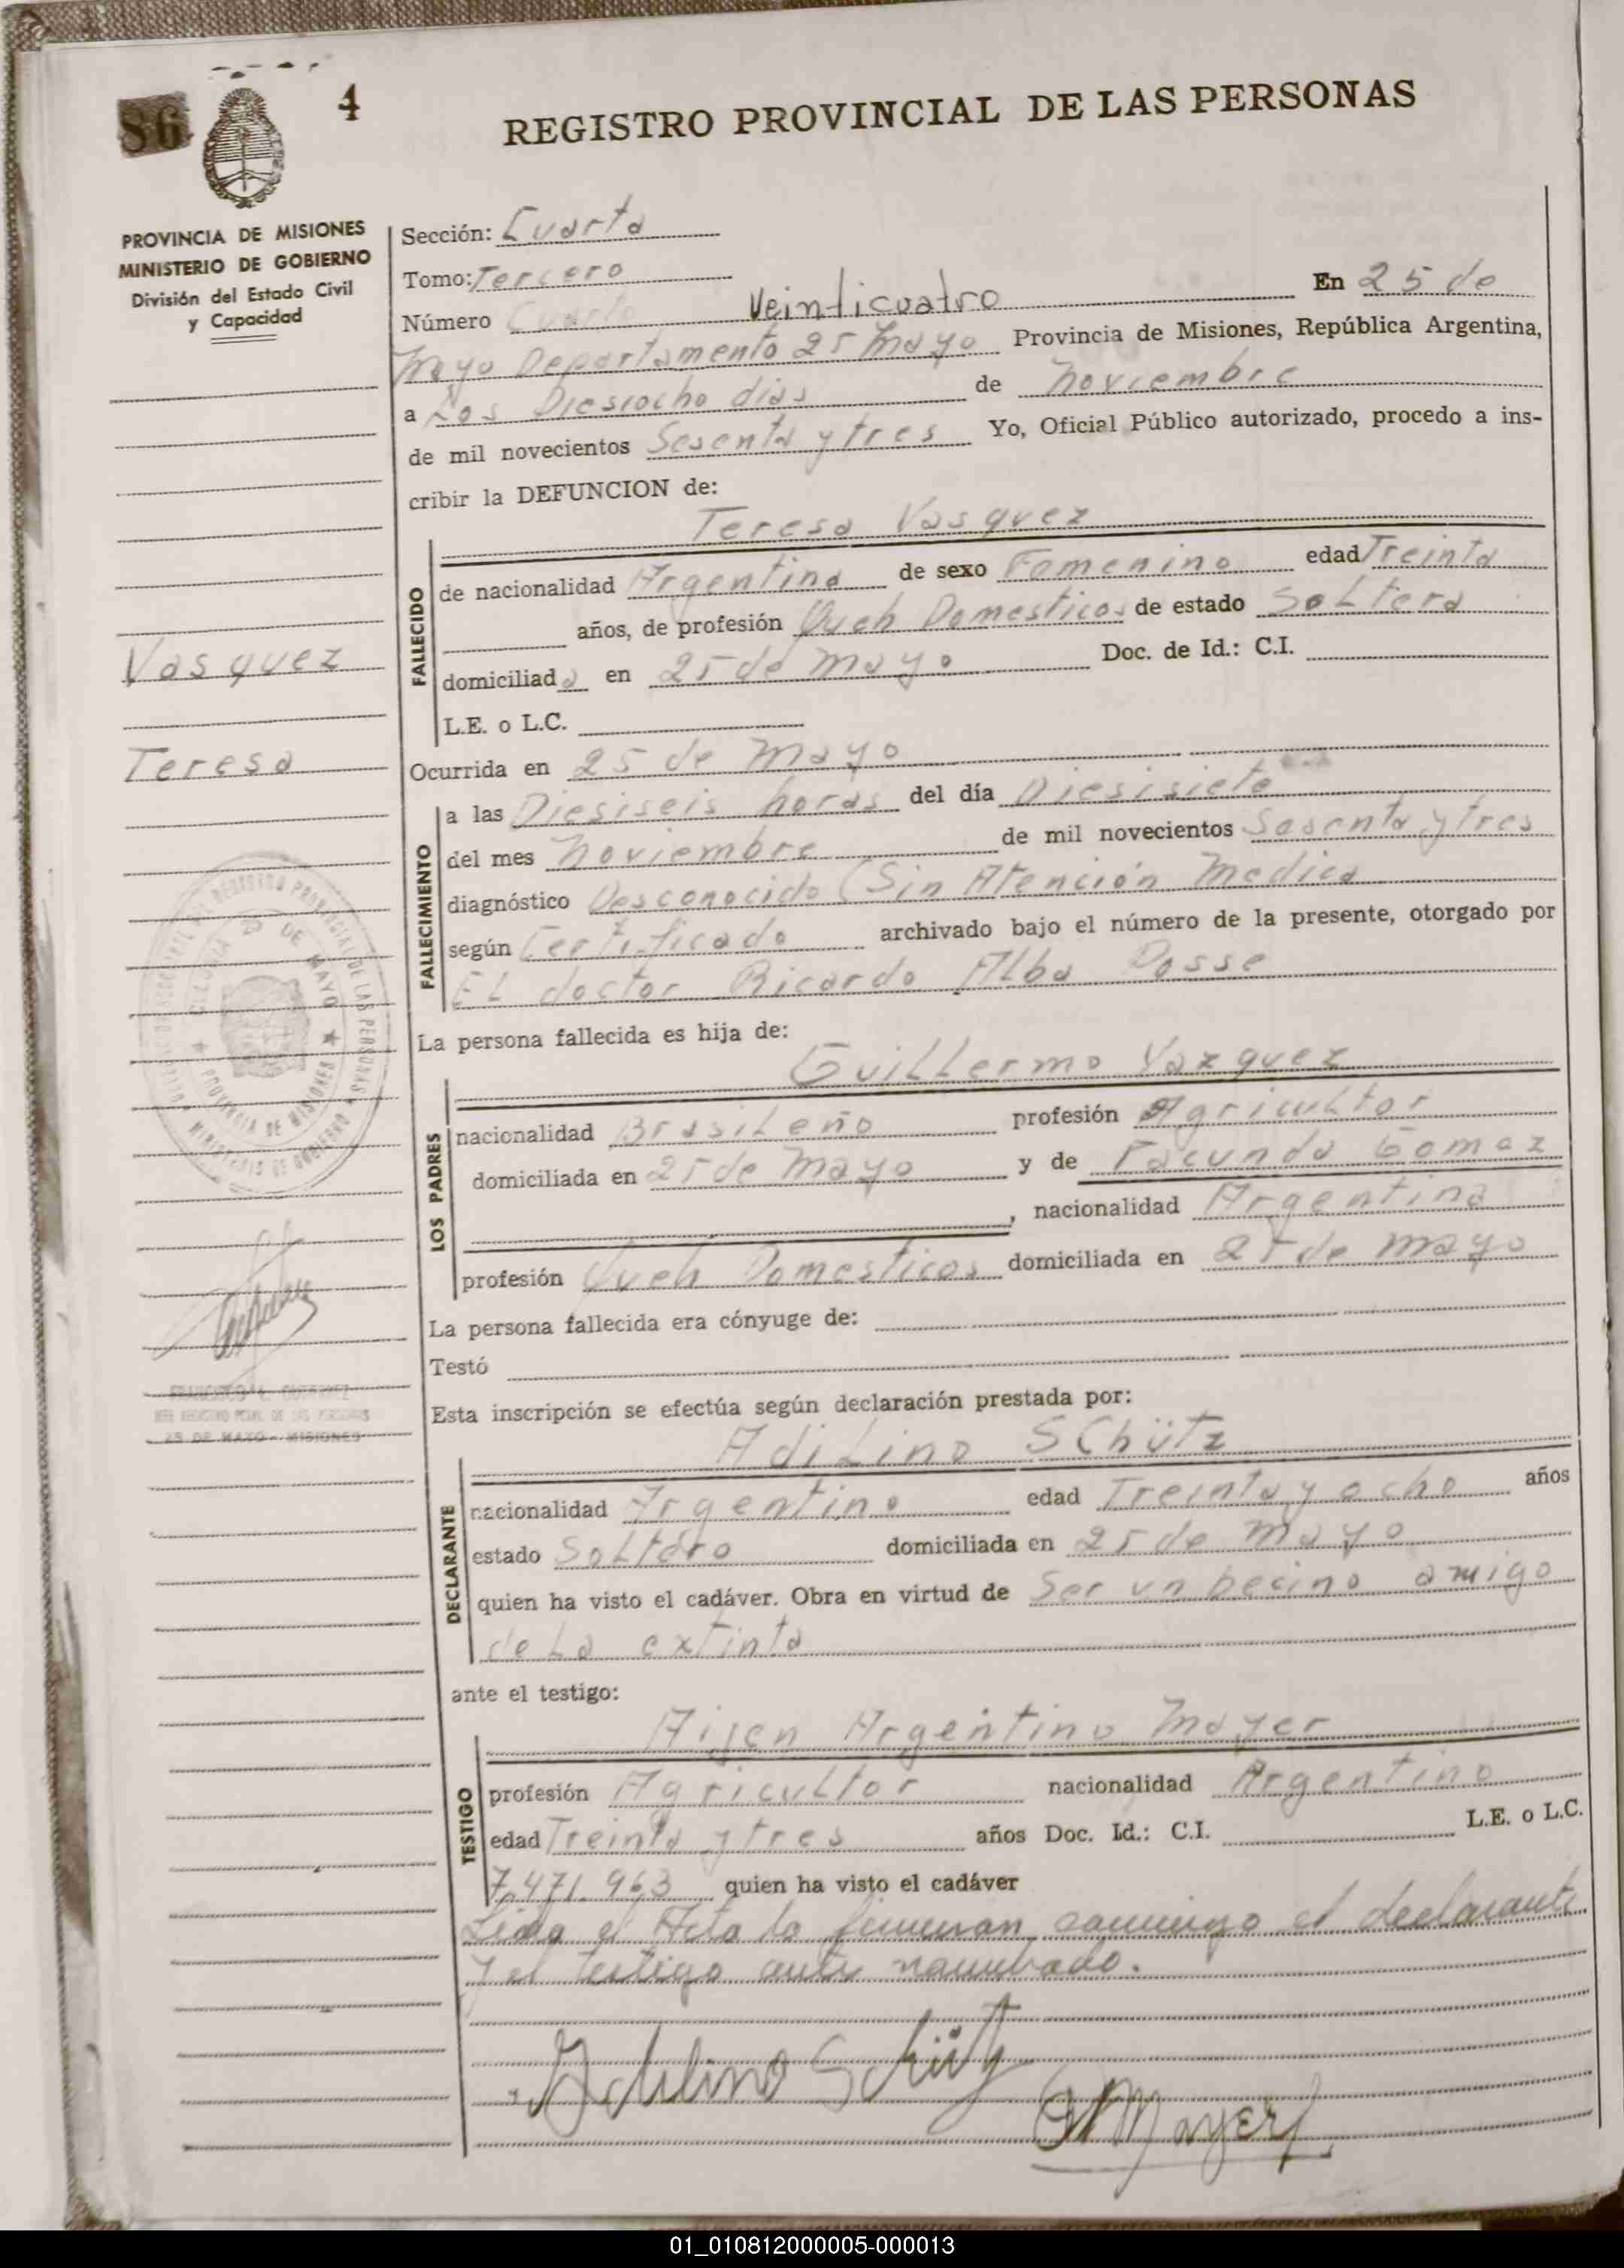 86
4
REGISTRO PROVINCIAL DE LAS PERSONAS
PROVINCIA DE MISIONES
MINISTERIO DE GOBIERNO
División del Estado Civil
y Capacidad
Sección: Cuarta
Tomo: Tercero
Número Cuarto Veinticuatro En 25 de
Mayo Departamento 25 Mayo Provincia de Misiones, República Argentina,
a Los Diesiocho dias de Noviembre
de mil novecientos Sesenta y tres Yo, Oficial Público autorizado, procedo a ins-
cribir la DEFUNCION de:
Teresa Vasquez
FALLECIDO
de nacionalidad Argentina de sexo Femenino edad Treinta
años, de profesión Queh Domesticos de estado Soltera
domiciliada en 25 de Mayo Doc. de Id.: C.I.
L.E. o L.C.
Vasquez
Teresa
Ocurrida en 25 de Mayo
FALLECIMIENTO
a las Diesiseis horas del día Diesisiete
del mes Noviembre de mil novecientos Sesenta y tres
diagnóstico Desconocido (Sin Atención Medica
según Certificado archivado bajo el número de la presente, otorgado por
EL doctor Ricardo Alba Posse
La persona fallecida es hija de:
Guillermo Vazquez
LOS PADRES
nacionalidad Brasileño profesión Agricultor
domiciliada en 25 de Mayo y de Facunda Gomez
, nacionalidad Argentina
profesión Queh Domesticos domiciliada en 25 de Mayo
La persona fallecida era cónyuge de:
Testó
Esta inscripción se efectúa según declaración prestada por:
Adilino SChütz
DECLARANTE
nacionalidad Argentino edad Treinta y ocho años
estado Soltero domiciliada en 25 de Mayo
quien ha visto el cadáver. Obra en virtud de Ser un becino amigo
de La extinta
ante el testigo:
Aijen Argentino Mayer
TESTIGO
profesión Agricultor nacionalidad Argentino
edad Treinta y tres años Doc. Id.: C.I. L.E. o L.C.
7.471.963 quien ha visto el cadáver
Leida el Acta la firmaran conmigo el declarante
y el testigo ante nombrado.
Adilino Schütz
Mayer
COLONIA 25 DE MAYO
PROVINCIA DE MISIONES
JEFE REGISTRO PCIAL DE LAS PERSONAS
25 DE MAYO - MISIONES
01_010812000005-000013